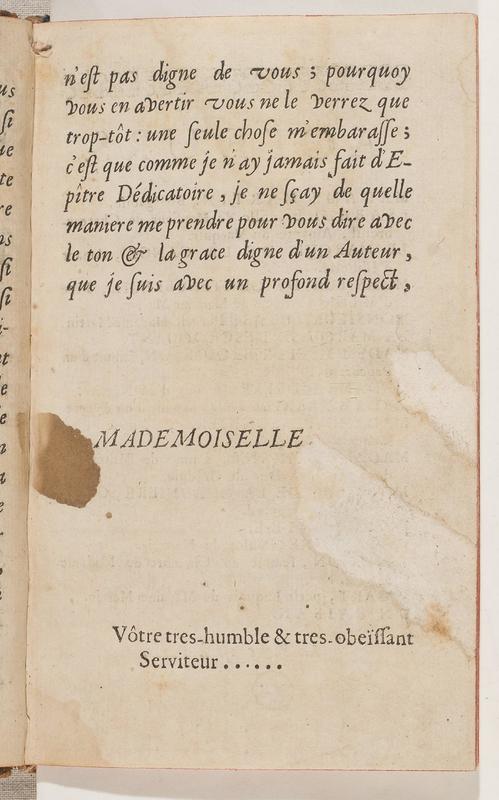 n'eſt pas digne de vous ; pourquoy
vous en avertir vous ne le verrez que
trop-tôt : une ſeule choſe m'embaraſſe ;
c'eſt que comme je n'ay jamais fait d'E-
pître Dédicatoire , je ne ſçay de quelle
maniere me prendre pour vous dire avec
le ton & la grace digne d'un Auteur ,
que je ſuis avec un profond reſpect ,
MADEMOISELLE
Vôtre tres-humble & tres-obeïſſant
Serviteur . . . . . .